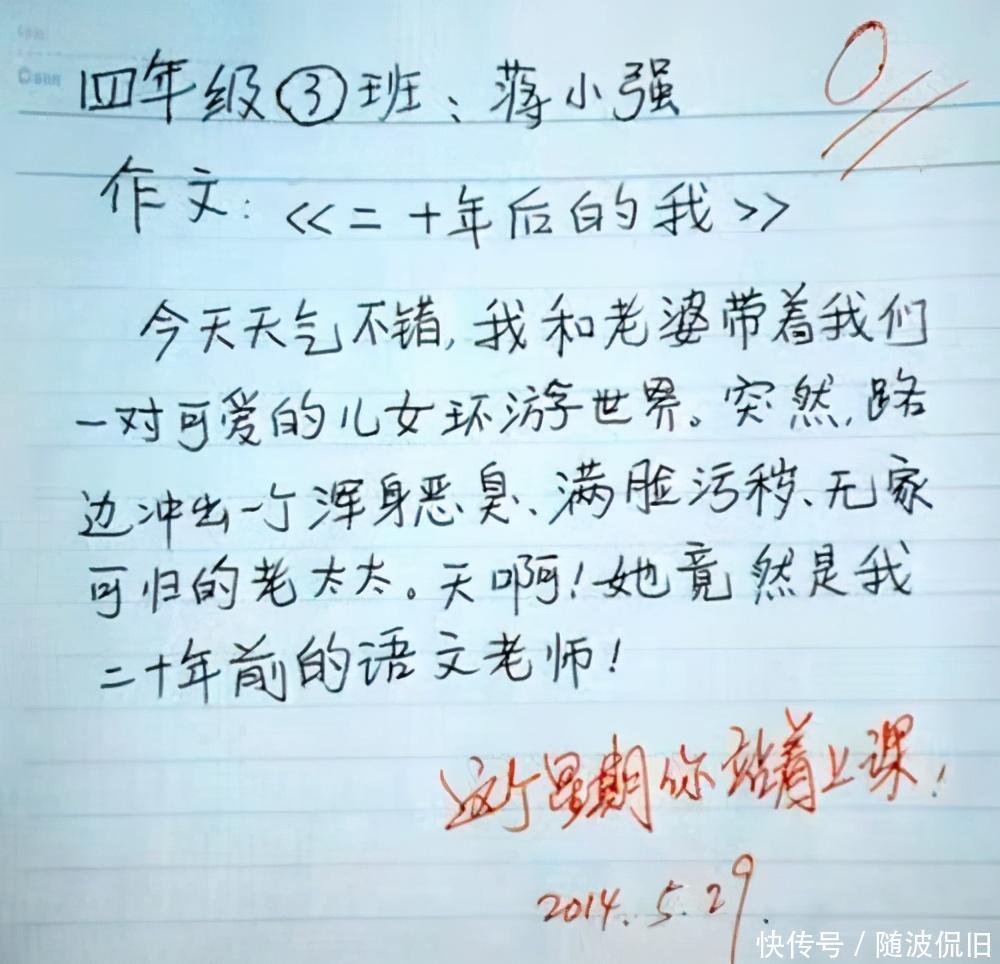 四年级③班：蒋小强
0
作文：<<二十年后的我>>
今天天气不错，我和老婆带着我们
一对可爱的儿女环游世界。突然，路
边冲出一个浑身恶臭、满脸污秽、无家
可归的老太太。天啊！她竟然是我
二十年前的语文老师！
这个星期你站着上课！
2014.5.29.
快传号/随波侃旧